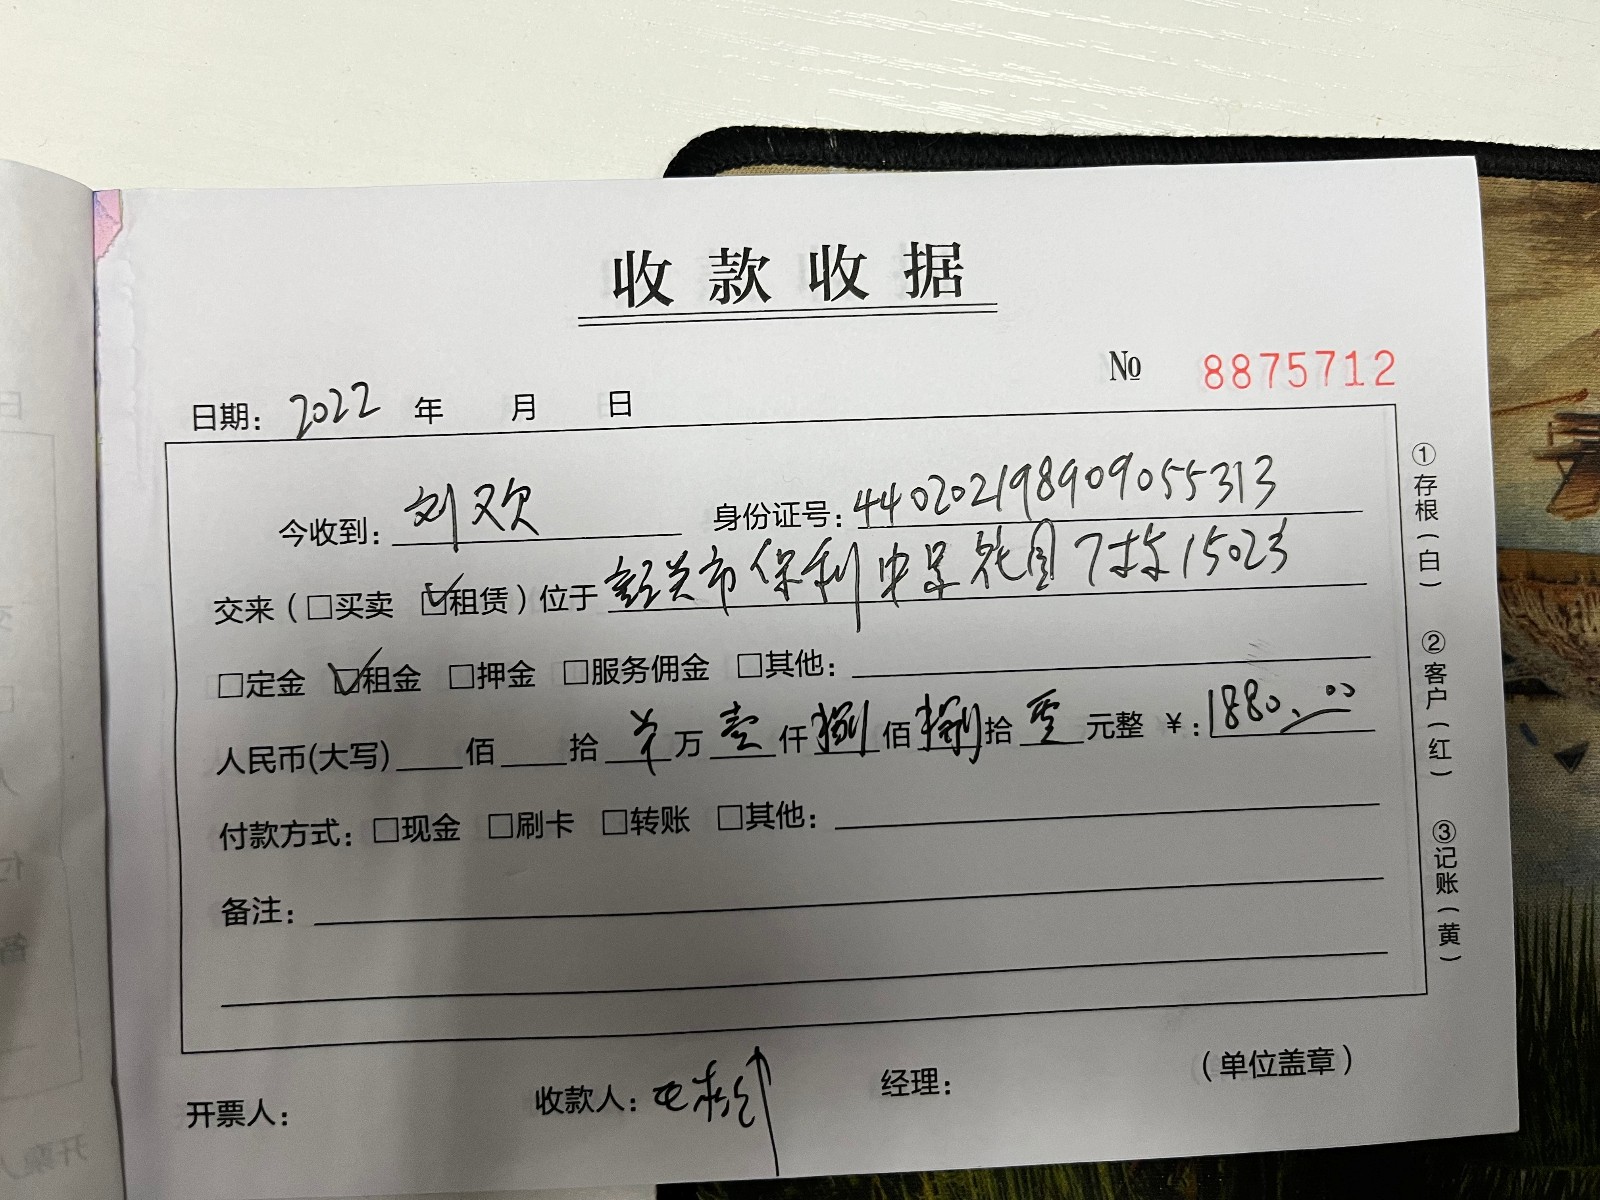 收款收据
№ 8875712
日期: 2022 年 月 日
今收到: 刘欢 身份证号: 440202198909055313
交来(□买卖 ☑租赁)位于 绍兴市保利中景花园7栋15023
□定金 ☑租金 □押金 □服务佣金 □其他:
人民币(大写) 佰 拾 万 壹 仟 捌 佰 捌 拾 零 元整 ¥: 1880.00
付款方式: □现金 □刷卡 □转账 □其他:
备注:
开票人: 收款人: 经理: (单位盖章)
①存根(白) ②客户(红) ③记账(黄)